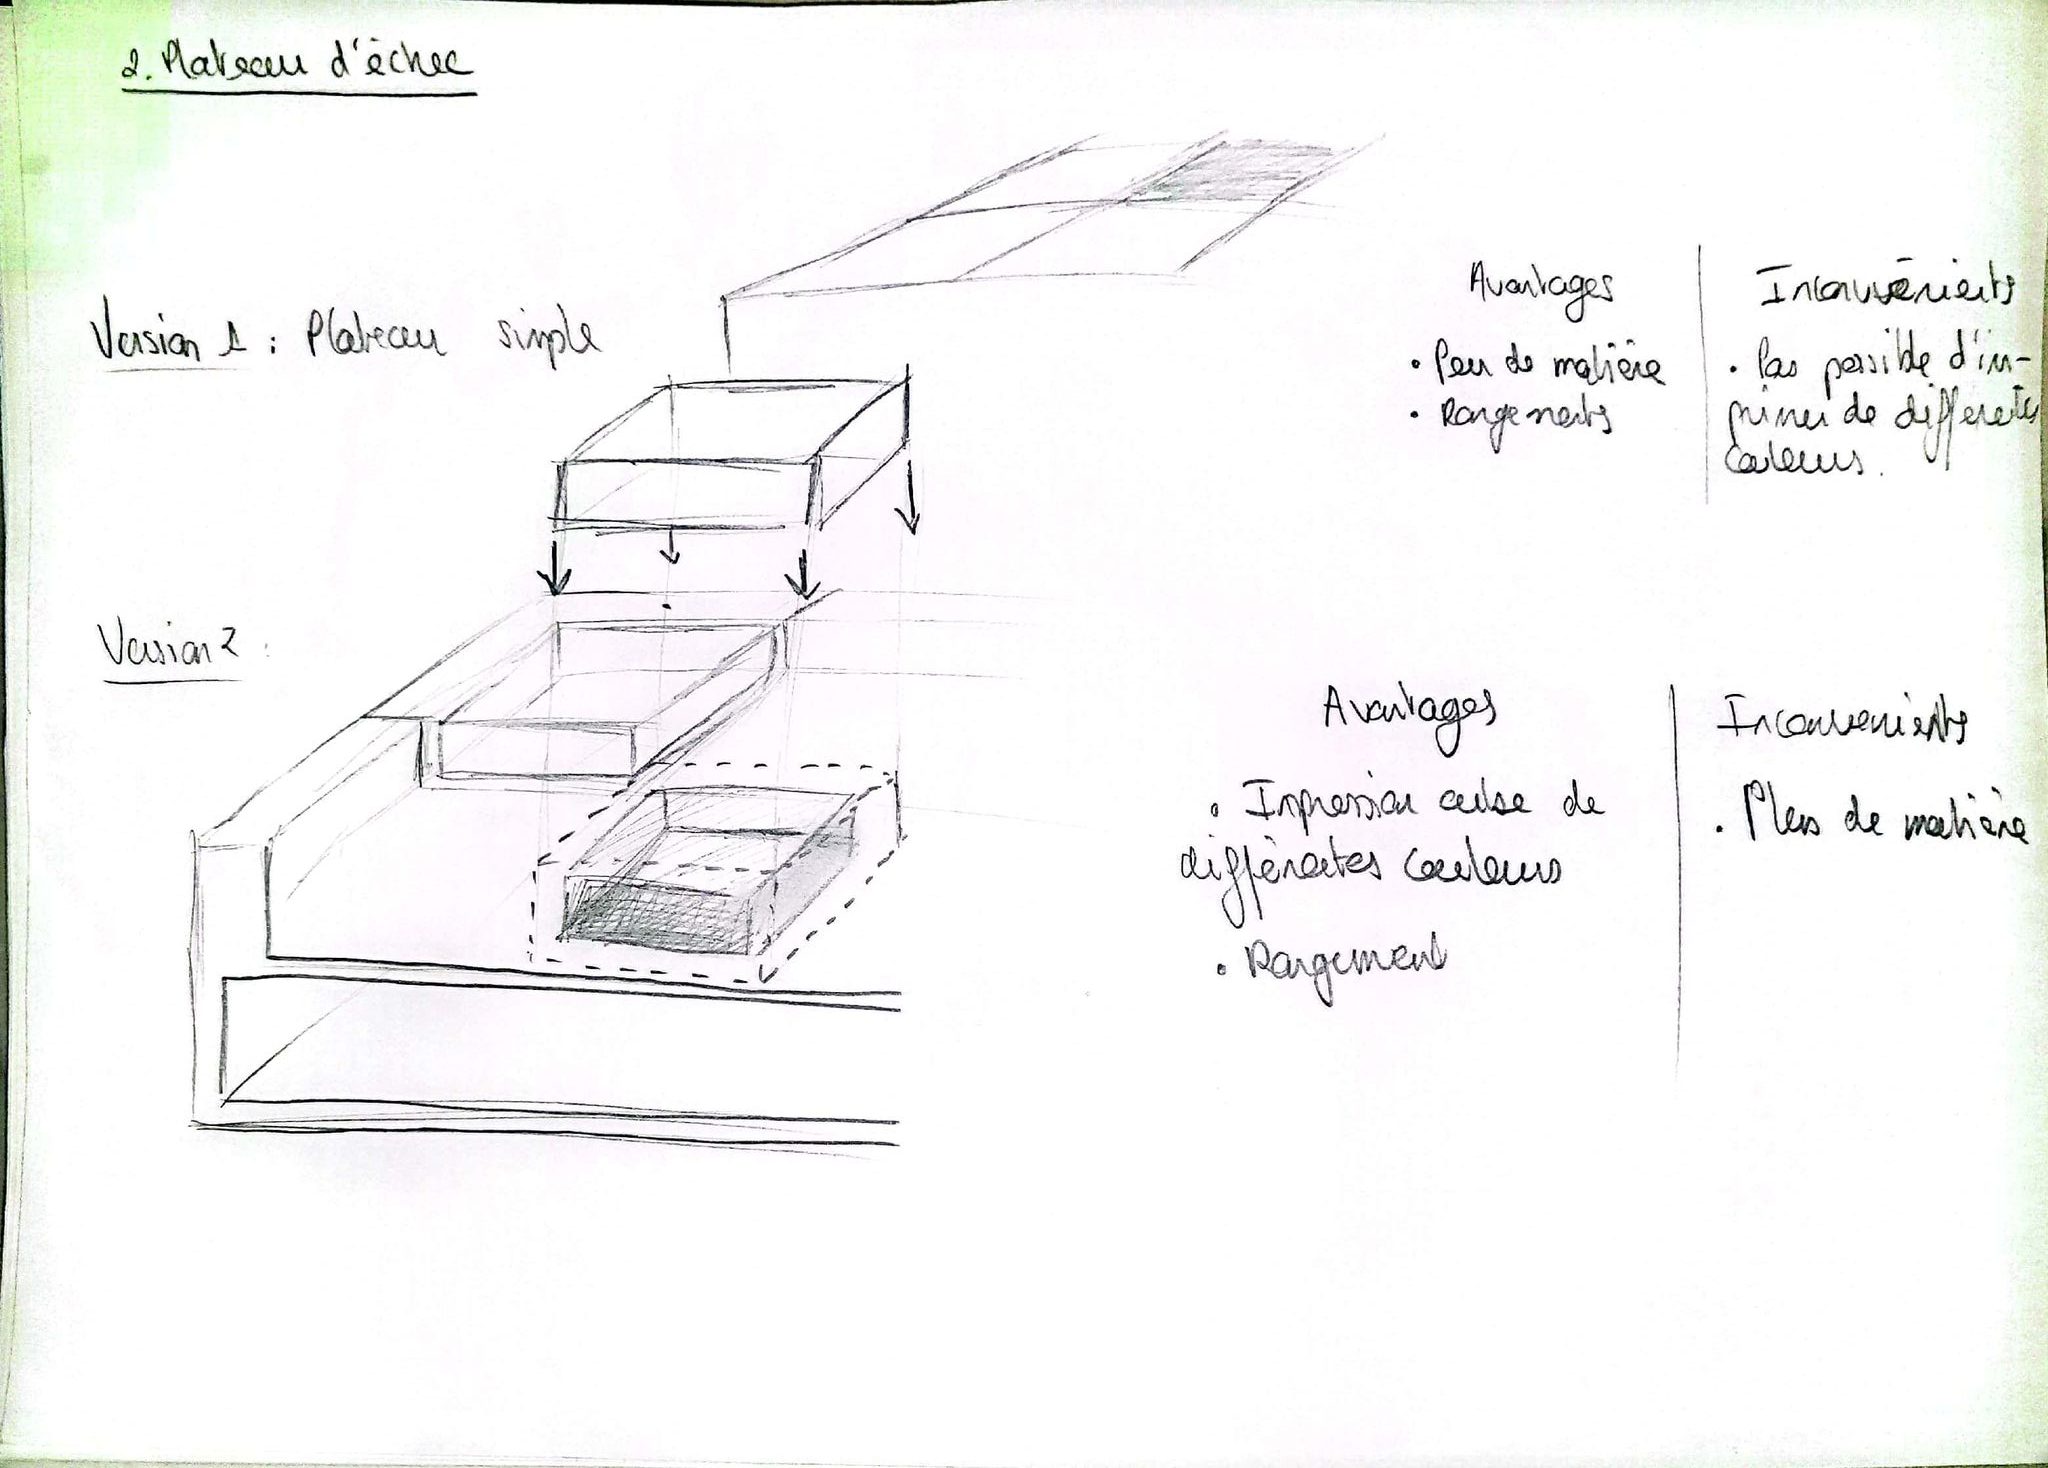 2. Plateau d'échec
Version 1 : Plateau simple
Avantages
• Peu de matière
• Rangements
Inconvénients
• Pas possible d'im-
primer de différentes
couleurs.
Version 2 :
Avantages
• Impression cube de
différentes couleurs
• Rangement
Inconvenients
• Plus de matière